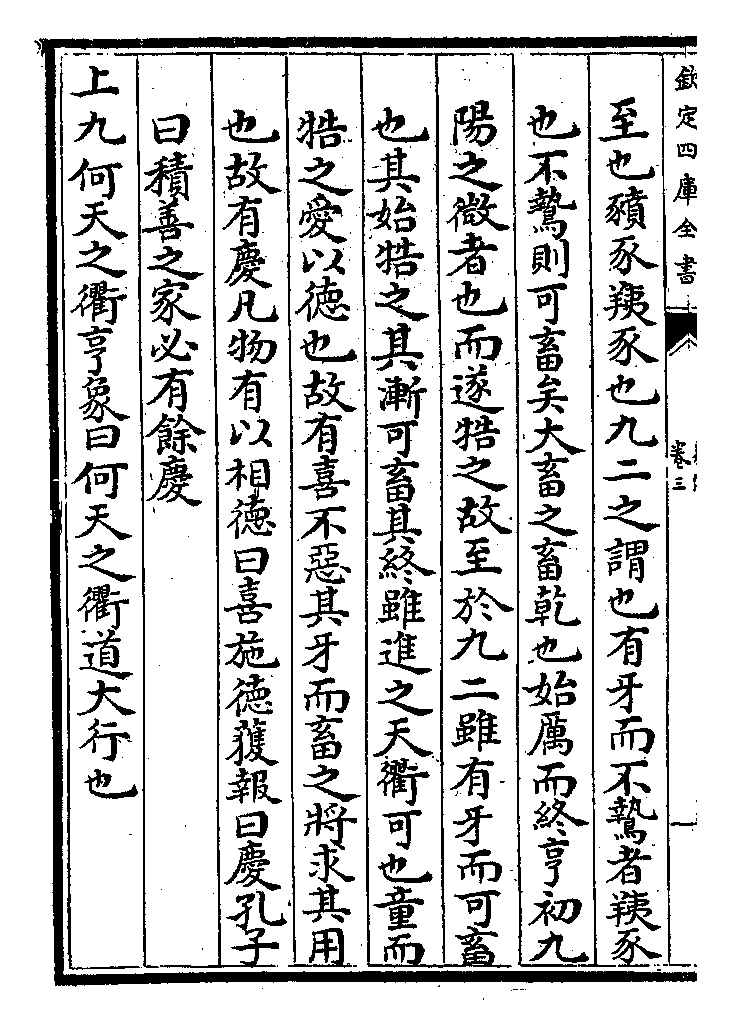 欽定四庫全書
卷三
至也豶豕羠豕也九二之謂也有牙而不鷙者羠豕
也不鷙則可畜矣大畜之畜乾也始厲而終亨初九
陽之微者也而遂牿之故至於九二雖有牙而可畜
也其始牿之其漸可畜其終雖進之天衢可也童而
牿之愛以德也故有喜不惡其牙而畜之將求其用
也故有慶凡物有以相德曰喜施德獲報曰慶孔子
曰積善之家必有餘慶
上九何天之衢亨象曰何天之衢道大行也